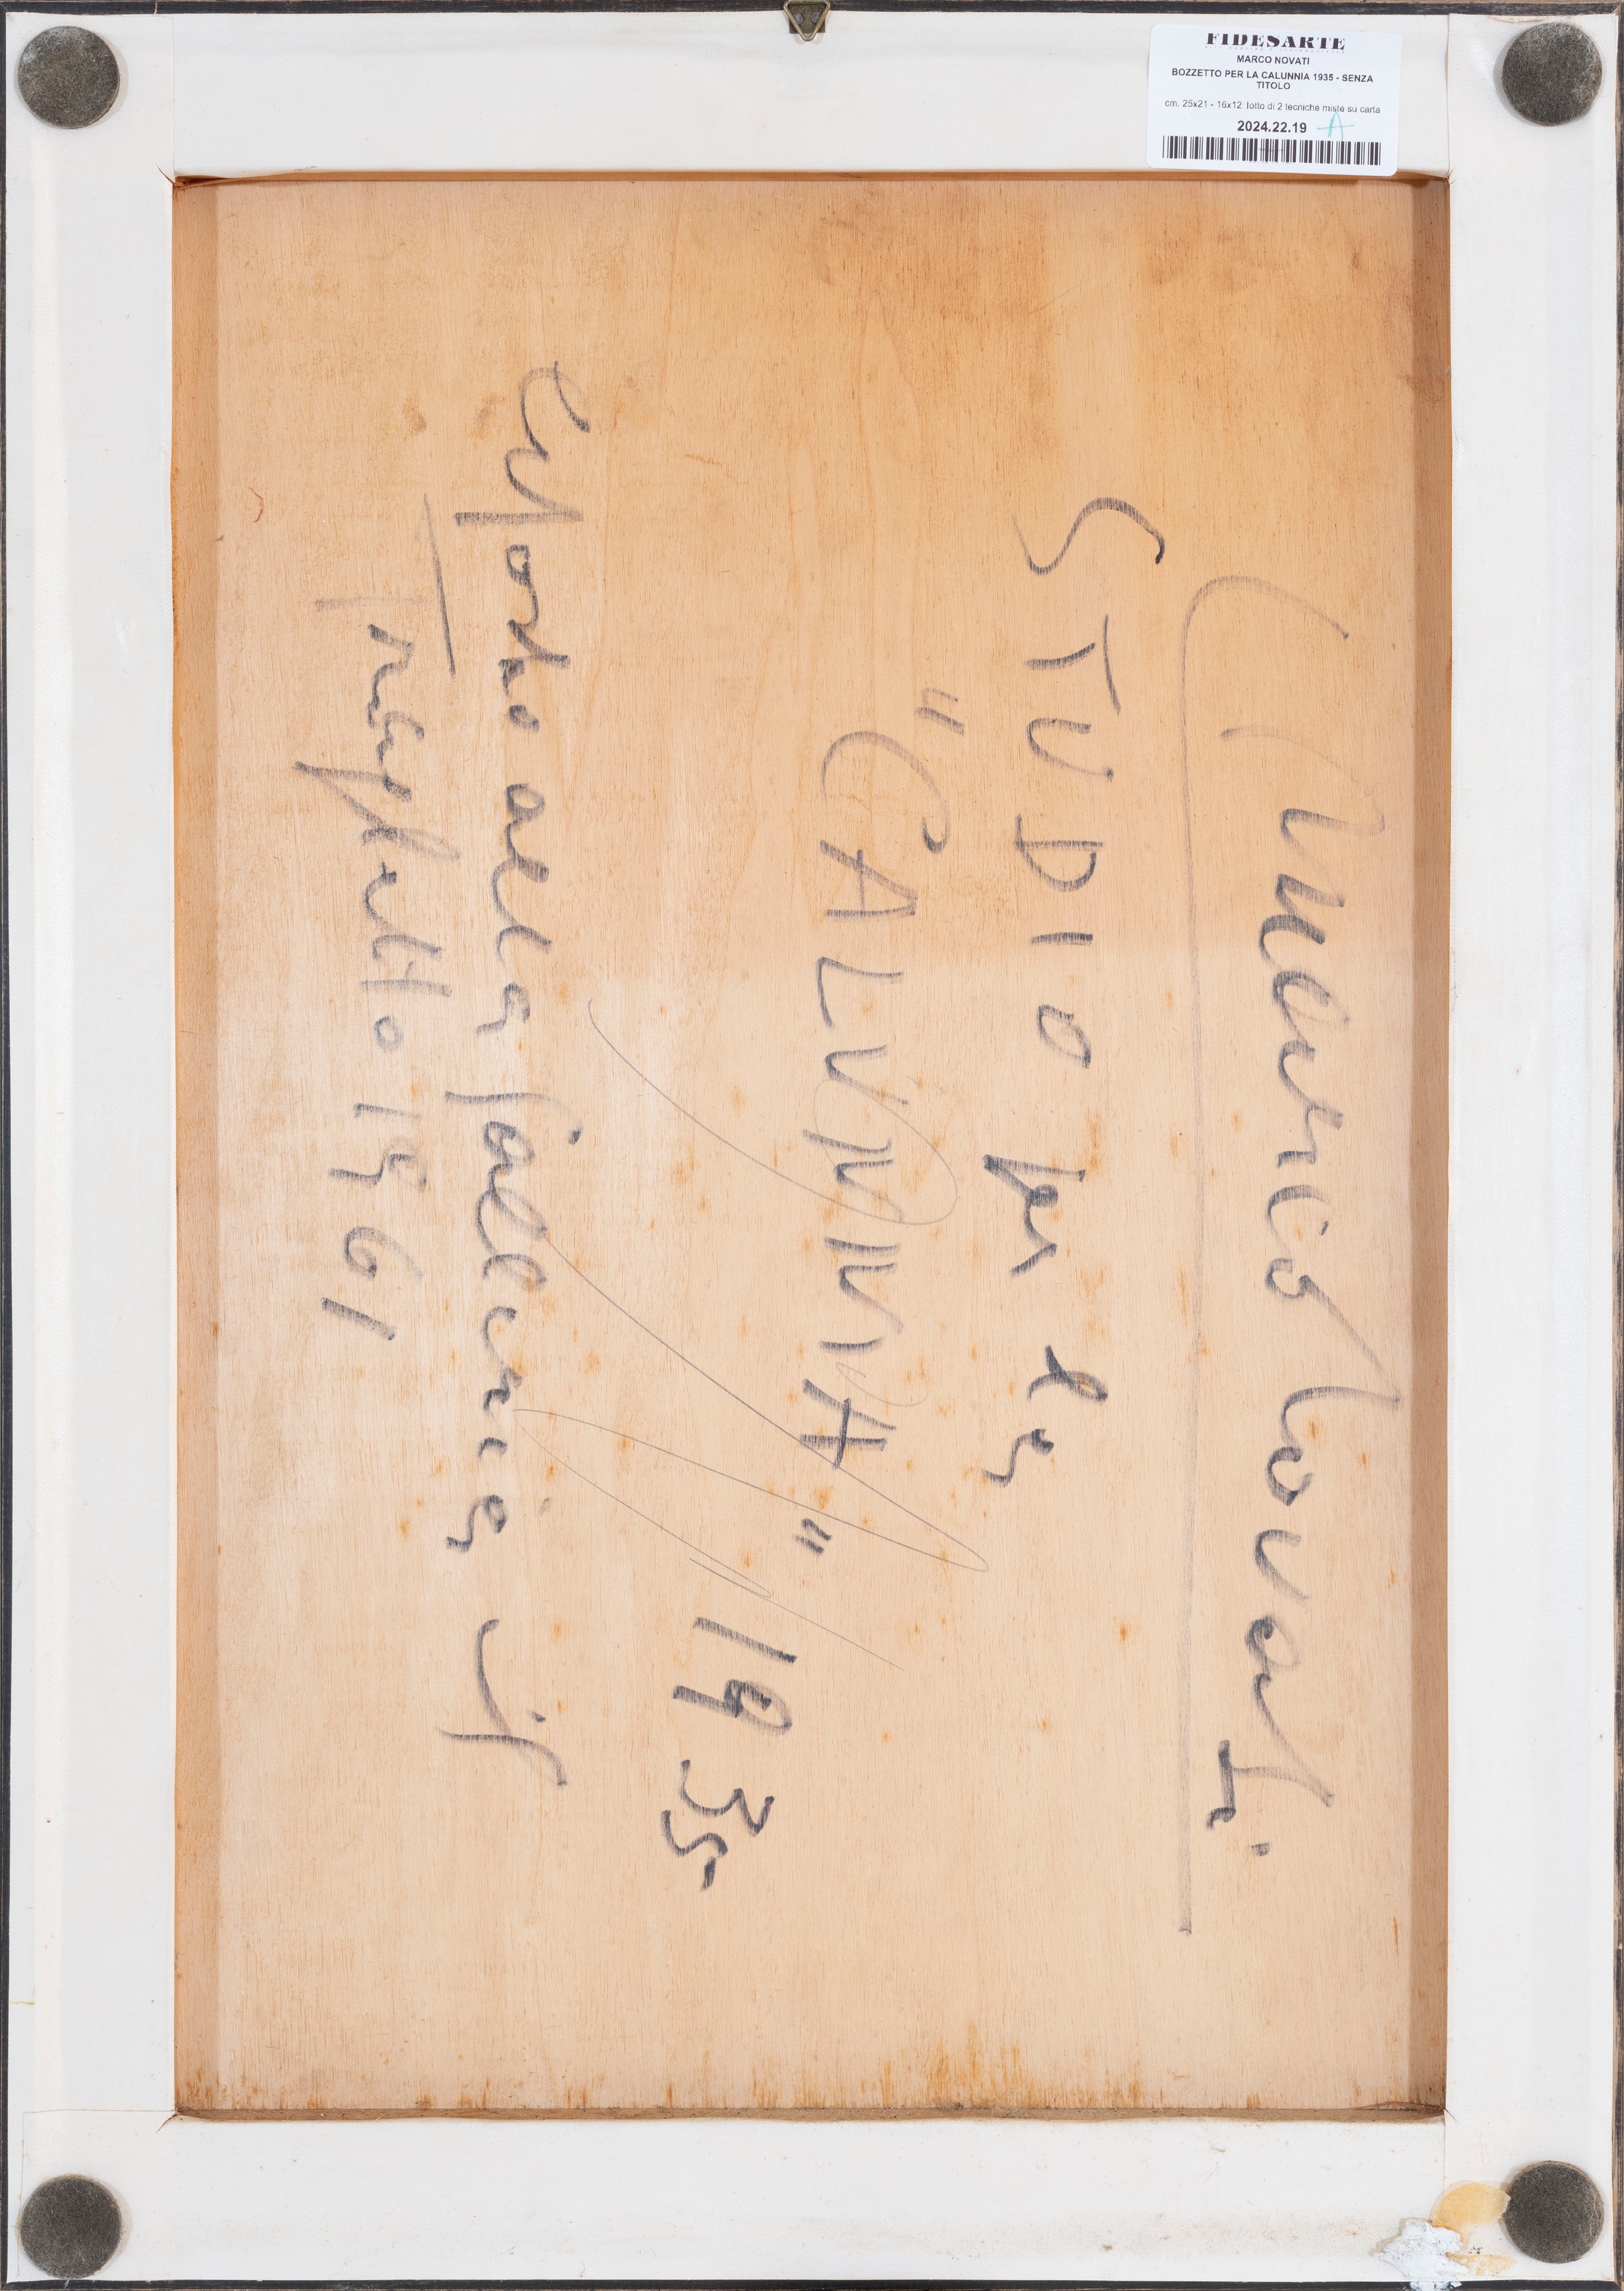 FIDESARTE
MARCO NOVATI
BOZZETTO PER LA CALUNNIA 1935 - SENZA
TITOLO
cm. 25x21 - 16x12 lotto di 2 tecniche miste su carta
2024.22.19 A
Novati
STUDIO per la
"CALUNNIA"
1935
esposto alla galleria il
Traghetto 1961